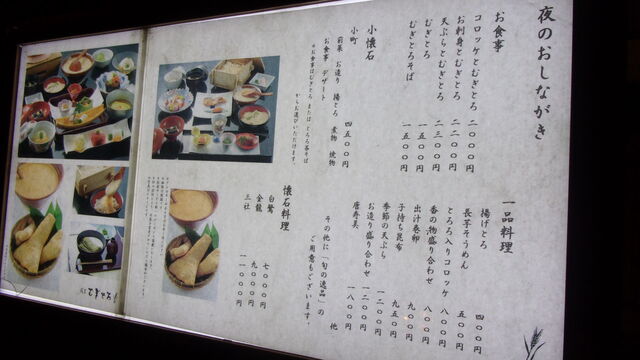 夜のおしながき
お食事
コロッケとむぎとろ 二〇〇〇円
お刺身とむぎとろ 二二〇〇円
天ぷらとむぎとろ 二三〇〇円
むぎとろ 一五〇〇円
むぎとろそば 一五〇〇円
小懐石
小町 四五〇〇円
前菜 お造り 揚とろ 煮物 焼物
お食事 デザート
※お食事はむぎとろ または とろろ茶そば
からお選びいただけます。
一品料理
揚げとろ 四〇〇円
長芋そうめん 五〇〇円
とろろ入りコロッケ 八〇〇円
香の物盛り合わせ 八〇〇円
出汁巻卵 九〇〇円
子持ち昆布 九五〇円
季節の天ぷら 一二〇〇円
お造り盛り合わせ 一二〇〇円
唐寿美 一八〇〇円
他
その他に「旬の逸品」の
ご用意もございます。
懐石料理
白鷺 七〇〇〇円
金龍 九〇〇〇円
三社 一一〇〇〇円
むぎとろ